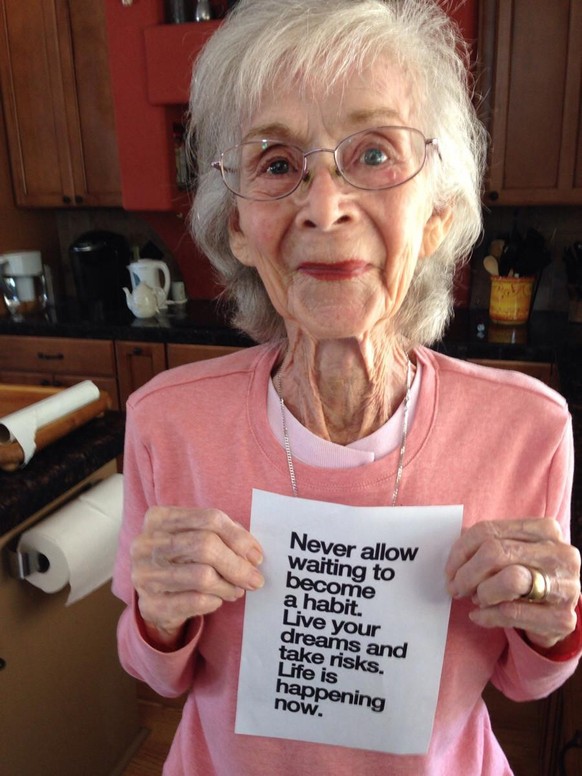 Never allow
waiting to
become
a habit.
Live your
dreams and
take risks.
Life is
happening
now.